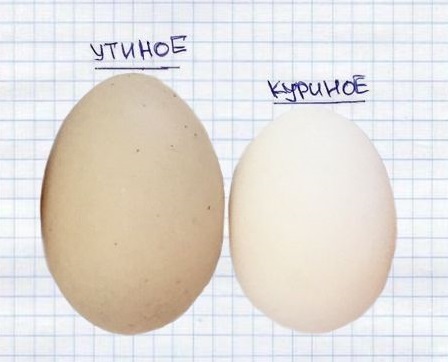 УТИНОЕ
КУРИНОЕ